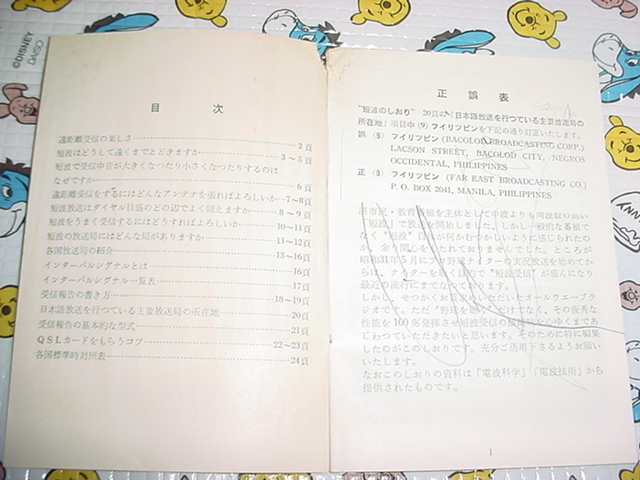 ©DISNEY
DAISO
目 次
遠距離受信の楽しさ…………2頁
短波はどうして遠くまでとどきますか…………3～5頁
短波で受信中音が大きくなつたり小さくなつたりするのは
なぜですか…………6頁
遠距離受信をするにはどんなアンテナを張ればよろしいか…7～8頁
短波放送はダイヤル目盛のどの辺でよく聞えますか…………8～9頁
短波をうまく受信するにはどうすればよろしいか…………10～11頁
短波の放送局にはどんな局がありますか…………11～12頁
各国放送局の紹介…………13～16頁
インターバルシグナルとは…………16頁
インターバルシグナル一覧表…………17頁
受信報告の書き方…………18～19頁
日本語放送を行つている主要放送局の所在地…………20頁
受信報告の基本的な型式…………21頁
QSLカードをもらうコツ…………22～23頁
各国標準時対照表…………24頁
正 誤 表
"短波のしおり" 20頁の「日本語放送を行つている主要放送局の
所在地」項目中(9)フイリツピンを下記の通り訂正いたします。
誤 (9) フイリツピン (BACOLOD BROADCASTING CORP.)
LACSON STREET, BACOLOD CITY, NEGROS
OCCIDENTAL, PHILIPPINES
正 (9) フイリツピン (FAR EAST BROADCASTING CO.)
P. O. BOX 2041, MANILA, PHILIPPINES
市況・教育番組を主体として中波よりも周波数の高い
「短波」で放送を開始しました。しかし一般的な番組で
なく"短波"自体が何かむつかしいように感じられたの
か、余り関心をもたれておりませんでした。ところが
昭和31年5月にプロ野球ナイターの実況放送を始めてか
らは、ナイターを聴く目的で"短波受信"が盛んになり
最近の流行にまでなつております。
しかし、せつかくお買求めいただいたオールウエーブラ
ジオです。ただ『野球を聴く』だけでなく、その優秀な
性能を100%発揮させ短波受信の醍醐味を心ゆくまであ
じわつていただきたいと思います。そのために特に編集し
たのがこのしおりです。充分ご活用下さるようお願い
いたします。
なおこのしおりの資料は「電波科学」「電波技術」から
提供されたものです。
1